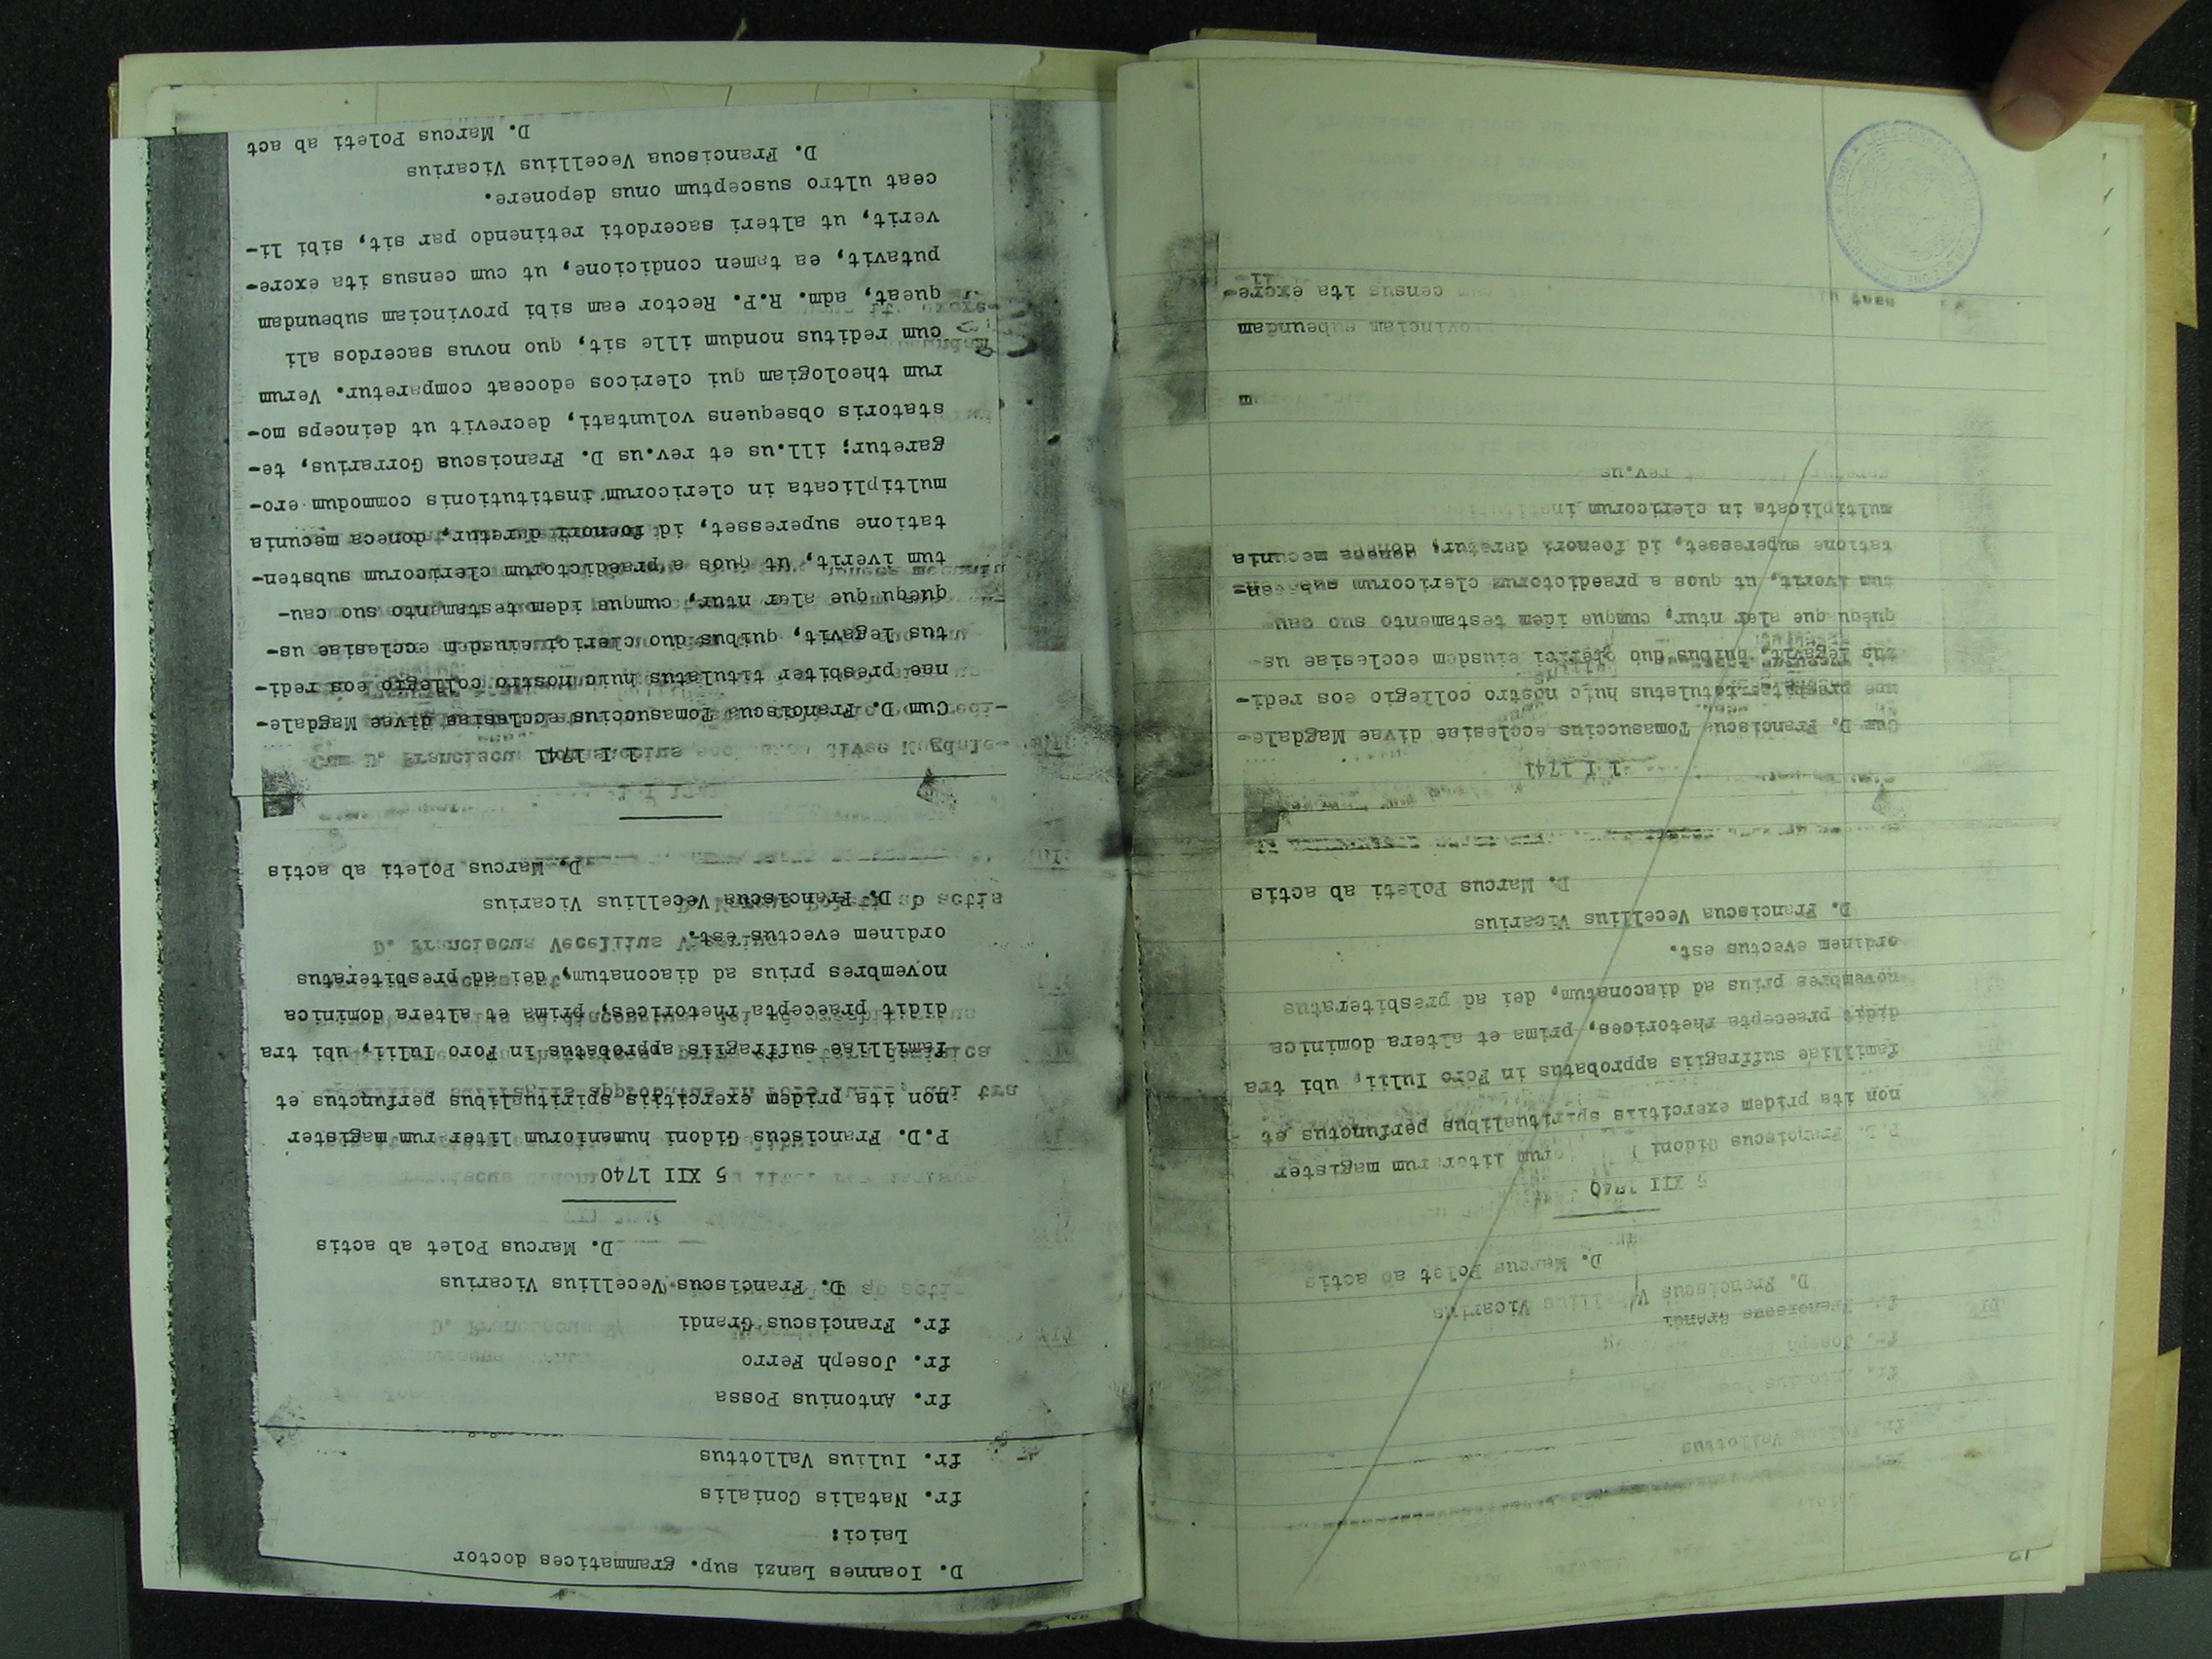 fr. Iulius Vallottus
fr. Joseph
fr. Franciscus Grandi
D. Franciscus Vicarius
D. Marcus Polet ab actis
5 XII 1740
P.D. Franciscus Gidoni literarum magister
non ita pridem exercitiis spiritualibus perfunctus et
familiae suffragiis approbatus in Foro Iulii, ubi tra
didit praecepta rhetorices, prima et altera dominica
novembres prius ad diaconatum, dei ad presbiteratus
ordinem evectus est.
D. Franciscus Vecellius Vicarius
D. Marcus Poleti ab actis
1 I 1741
Cum D. Franciscus Tomasuccius ecclesiae divae Magdale-
nae presbiter titulatus huic nostro collegio eos redi-
tus legavit, quibus duo clerici eiusdem ecclesiae us-
quequ que aler ntur, cumque idem testamento suo cau
tum iverit, ut quos a praedictorum clericorum substen-
tatione superesset, id foenori daretur, donec a mecunia
multiplicata in clericorum
rev.us
provinciam subeundam
census ita excre-
D. Ioannes Lanzi sup. grammatices doctor
Laici:
fr. Natalis Conialis
fr. Iulius Vallottus
fr. Antonius Possa
fr. Joseph Ferro
fr. Franciscus Grandi
D. Franciscus Vecellius Vicarius
D. Marcus Polet ab actis
5 XII 1740
P.D. Franciscus Gidoni humaniorum liter rum magister
non ita pridem exercitiis spiritualibus perfunctus et
familiae suffragiis approbatus in Foro Iulii, ubi tra
didit praecepta rhetorices, prima et altera dominica
novembres prius ad diaconatum, dei ad presbiteratus
ordinem evectus est.
D. Franciscus Vecellius Vicarius
D. Marcus Poleti ab actis
1 I 1741
Cum D. Franciscus Tomasuccius ecclesiae divae Magdale-
nae presbiter titulatus huic nostro collegio eos redi-
tus legavit, quibus duo clerici eiusd m ecclesiae us-
quequ que aler ntur, cumque idem testamento suo cau-
tum iverit, ut quos a praedictorum clericorum substen-
tatione superesset, id foenori daretur, doneca mecunia
multiplicata in clericorum institutionis commodum ero-
garetur; ill.us et rev.us D. Franciscus Gorrarius, te-
statoris obsequens voluntati, decrevit ut deinceps mo-
rum theologiam qui clericos edoceat compararetur. Verum
cum reditus nondum ille sit, quo novus sacerdos ali
queat, adm. R.P. Rector eam sibi provinciam subeundam
putavit, ea tamen condicione, ut cum census ita excre-
verit, ut alteri sacerdoti retinendo par sit, sibi li-
ceat ultro susceptum onus deponere.
D. Franciscus Vecellius Vicarius
D. Marcus Poleti ab act